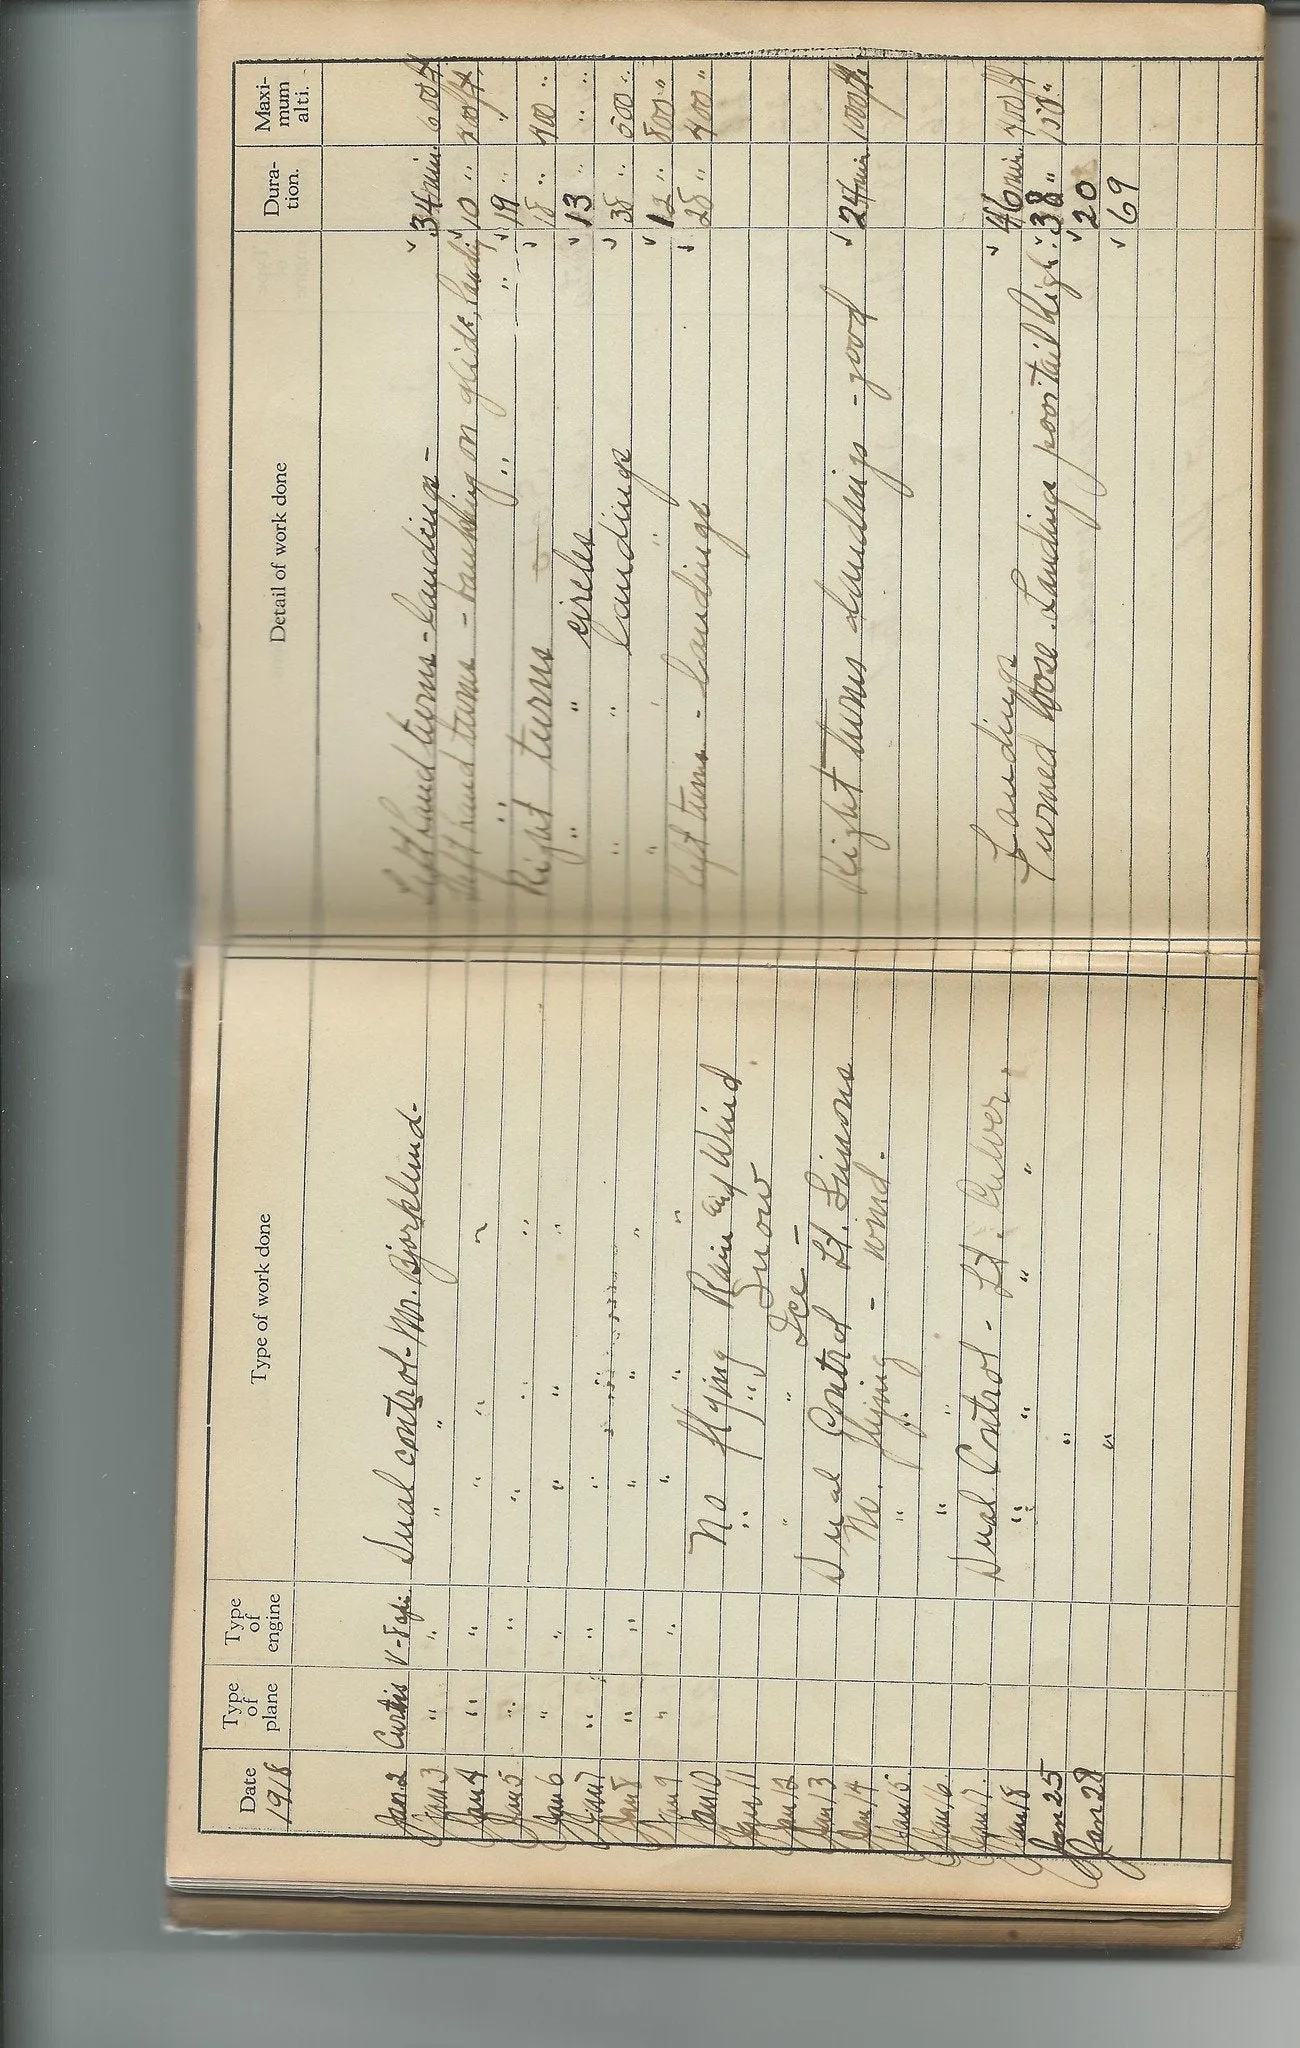 Date Type of plane Type of engine Type of work done Detail of work done Dura- tion. Maxi- mum alti.
1918
Jan 2 Curtis V- Dual control - Mr. Bjorklund - Left hand turns - landings - 34 min. 600 ft
Jan 3 " " " " Left hand turns - banking on glide, 10 "
Jan 4 " " " " " " " " 19 " "
Jan 5 " " " " " Right turns 18 " 400 "
Jan 6 " " " " " " " circles 13 " "
Jan 7 " " " " " " landings 38 " 500 "
Jan 8 " " " " " " " " 12 " 500 "
Jan 9 " " " " " Left turns - landings 28 " 400 "
Jan 10 No flying Rain and Wind
Jan 11 " " Snow
Jan 12 " " Ice -
Jan 13 Dual Control Lt. Simons Right turns landings - good 24 min 1000 ft
Jan 14 No flying - wind -
Jan 15 " "
Jan 16 " "
Jan 17 Dual Control - Lt. Culver. Landings 46 min. 400 ft
Jan 18 " " " " Turned loose. Landings poor tail high. 38 "
Jan 25 " 20
Jan 28 " 69